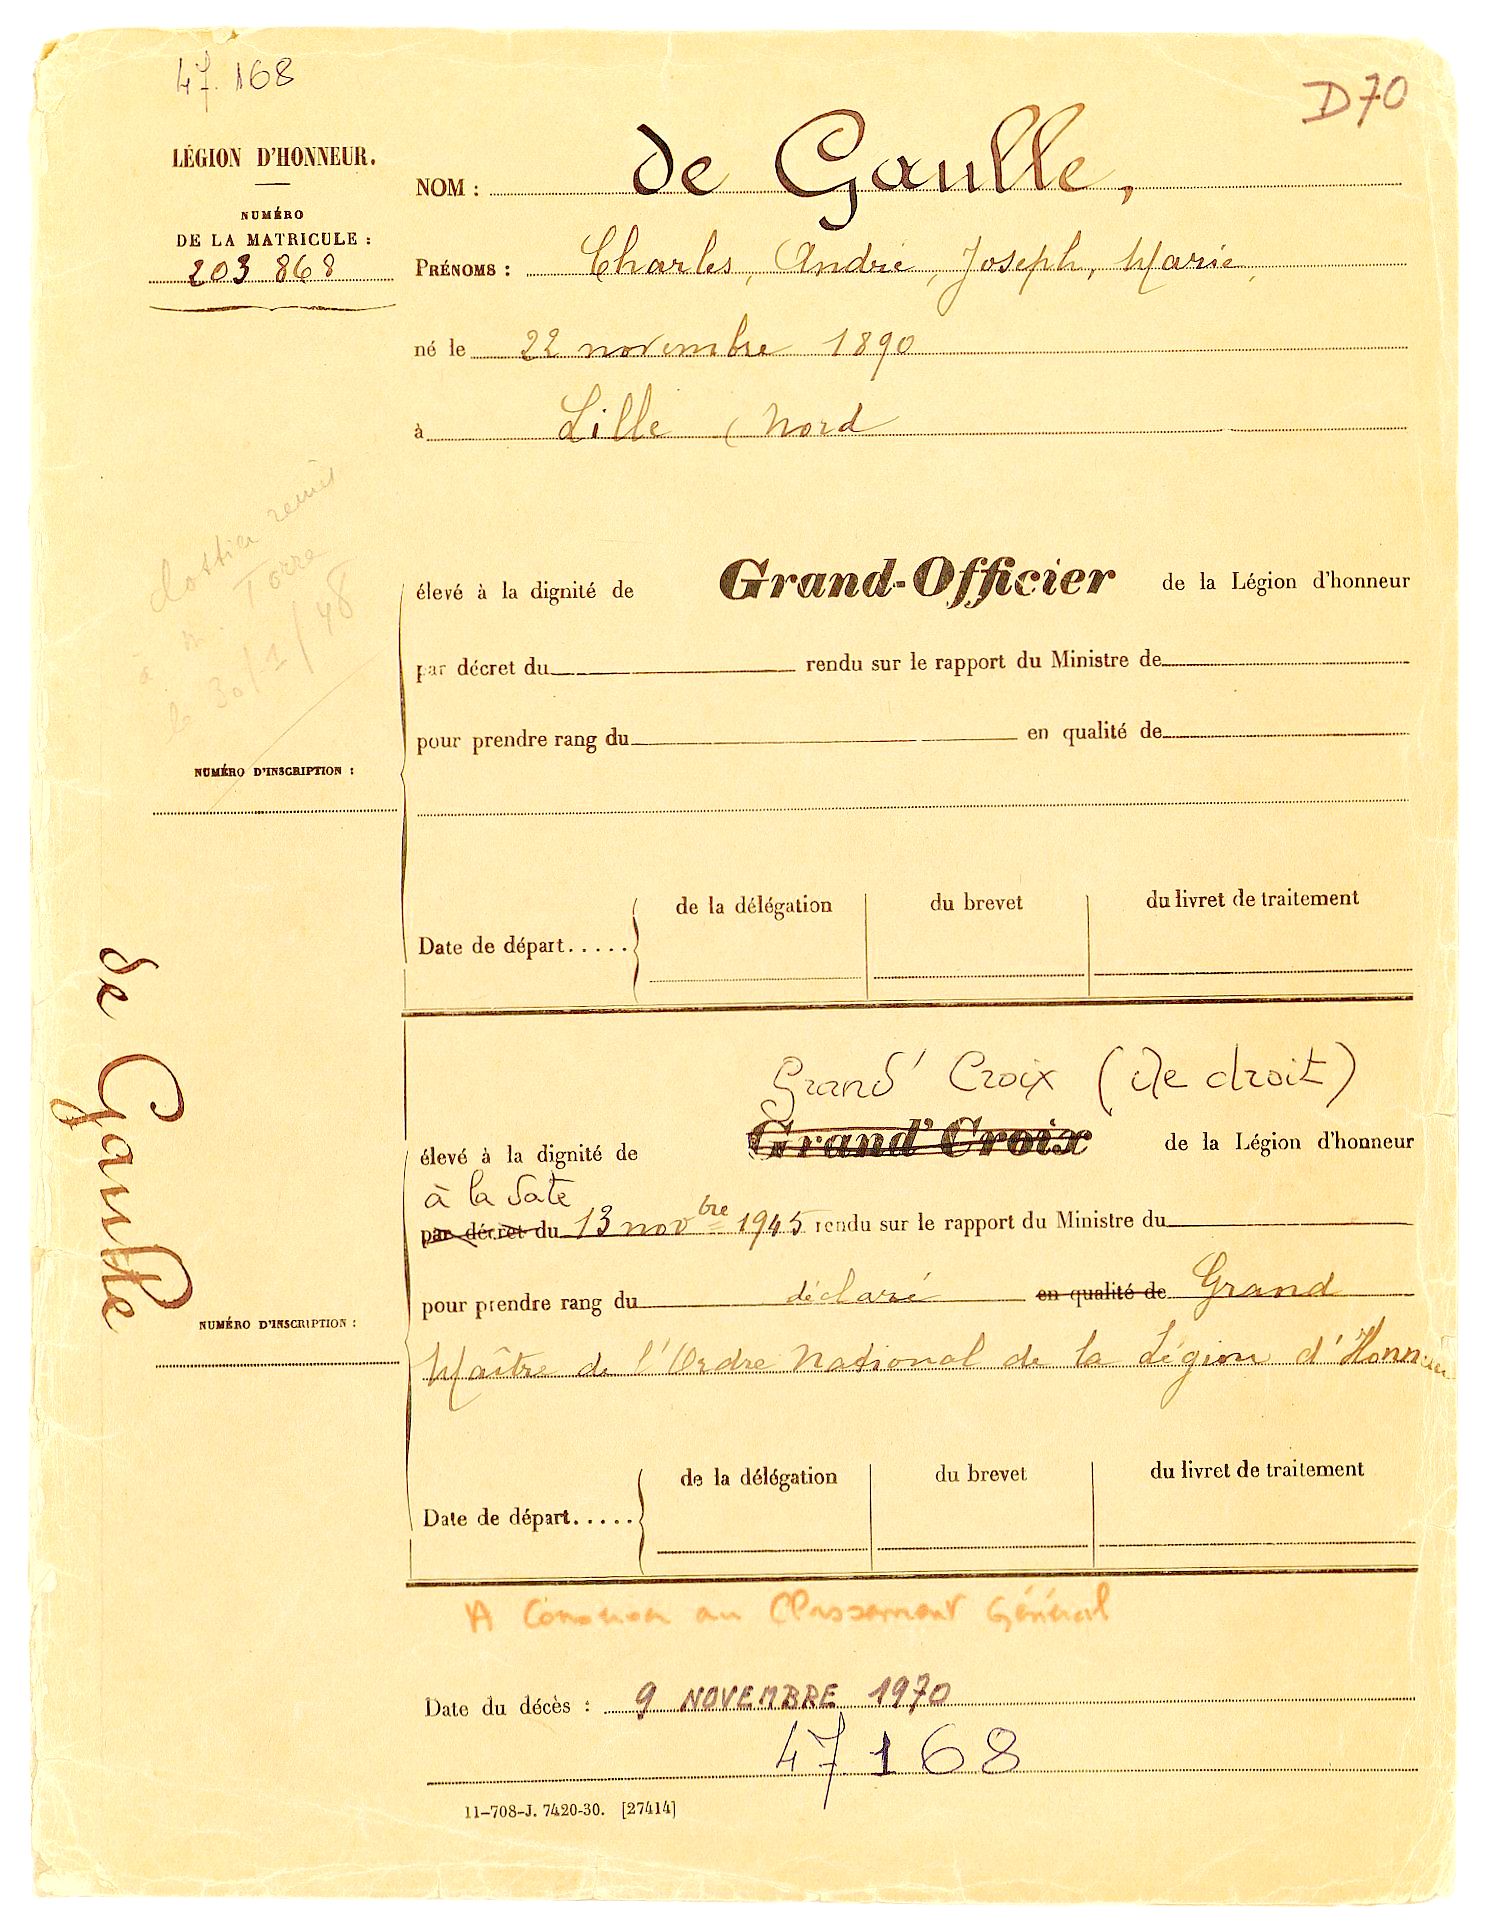 47.168
D70
LÉGION D'HONNEUR.
NUMÉRO
DE LA MATRICULE :
203 868
NOM : de Gaulle,
PRÉNOMS : Charles, André, Joseph, Marie,
né le 22 novembre 1890
à Lille (Nord
dossier remis
à M. Torre
le 30/1/48
élevé à la dignité de Grand-Officier de la Légion d'honneur
par décret du rendu sur le rapport du Ministre de
pour prendre rang du en qualité de
NUMÉRO D'INSCRIPTION :
de la délégation du brevet du livret de traitement
Date de départ.....
de Gaulle
Grand' Croix (de droit)
élevé à la dignité de Grand' Croix de la Légion d'honneur
à la date
par décret du 13 novbre 1945 rendu sur le rapport du Ministre du
pour prendre rang du déclaré en qualité de Grand
Maître de l'Ordre National de la Légion d'Honneur
NUMÉRO D'INSCRIPTION :
de la délégation du brevet du livret de traitement
Date de départ.....
A au Classement Général
Date du décès : 9 NOVEMBRE 1970
47168
11-708-J. 7420-30. [27414]